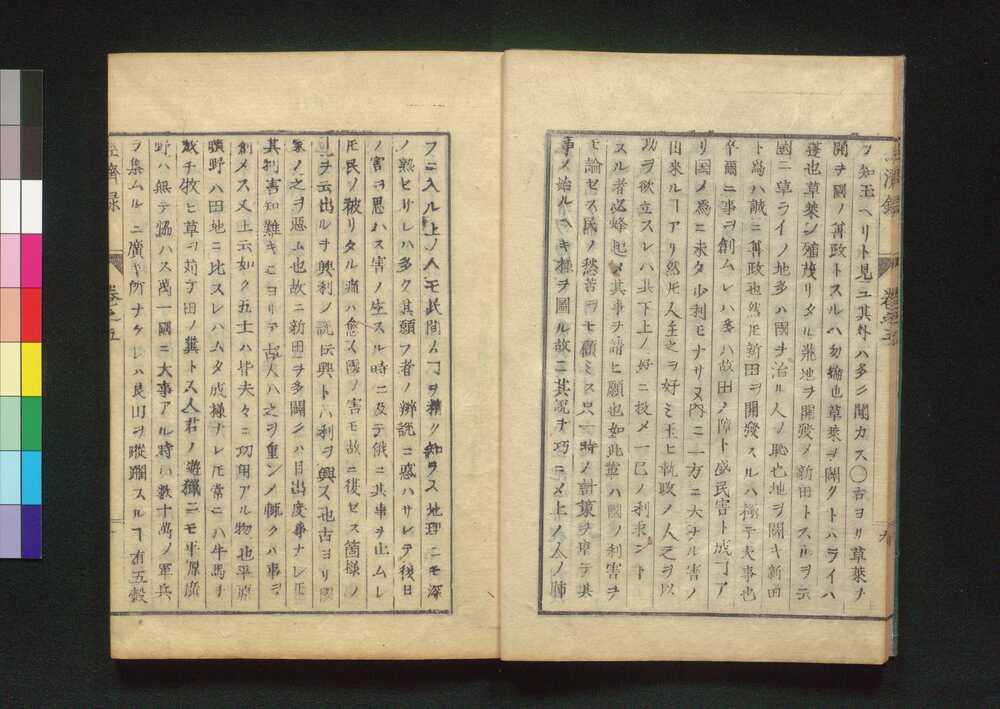 ヲ知玉ヘリト見ユ其外ハ多ク聞カス〇古ヨリ草莱ヲ
開ヲ國ノ善政トスルハ勿論也草莱ヲ闢クトハライハ
蓬也草莱シ殖茂リタル荒地ヲ開發メ新田トスルヲ云
國ニ草ライノ地多ハ國ヲ治ル人ノ恥也地ヲ闢キ新田
ト為ハ誠ニ善政也然圧新田ヲ開發スルハ極テ大事也
卒爾ニ事ヲ創ムレハ多ハ故田ノ障ト成民害ト成ヿア
リ國ノ爲ニ未タ少利モナサヌ内ニ一方ニ大ナル害ノ
出來ルヿアリ然圧人主之ヲ好ミ玉ヒ執政ノ人之ヲ以
功ヲ欲立スレハ其下上ノ好ニ投メ一己ノ利ホント
スル者必蜂起メ其事ヲ請ヒ願也如此輩ハ國ノ利害ヲ
モ論セス民ノ愁苦ヲモ顧ミス只一時ノ計策ヲ以テ其
事メ始ルヘキ様ヲ圖ル故ニ其説ヲ巧ニメ上ノ人ノ陣
フニ入ル上ノ人モ民間ノヿヲ精ク知ラス地理ニモ深
ノ熟ヒサレハ多ク其願フ者ノ辯説ニ惑ハサレテ後日
ノ害ヲ思ハス害ノ生スル時ニ及テ俄ニ其事ヲ止ムレ
圧民ノ被リタル痛ハ愈ス國ノ害モ故ニ復セス箇様ノ
ヿヲ云出ルヲ興利ノ説ト云興トハ利ヲ興ス也古ヨリ國
家ノ之ヲ惡ム也故ニ新田ヲ多闢クハ目出度事ナレ圧
其利害知難キニヨリテ古人ハ之ヲ重ンメ輙クハ事ヲ
創メス又上云如ク五土ハ皆夫々ニ功用アル物也平原
曠野ハ田地ニ比スレハムタ成様ナレ圧常ニハ牛馬ヲ
放チ牧ヒ草ヲ苅テ田ノ糞トス人君ノ遊獵ニモ平原廣
野ハ無テ協ハス萬一國ニ大事アル時ハ數十萬ノ軍兵
ヲ集ムルニ廣キ所ナケレハ良田ヲ蹂躙スルヿ有五穀
經濟錄
卷之五
九
經濟錄
卷之五